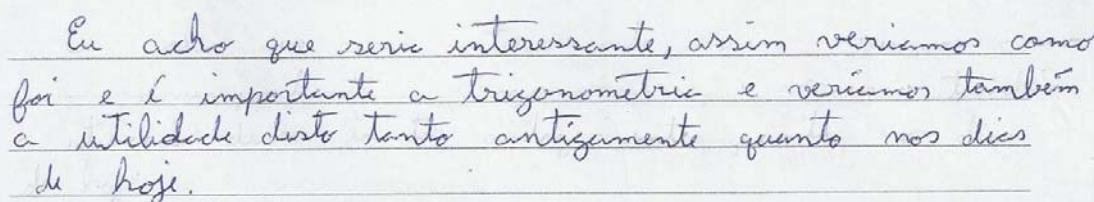 Eu acho que seria interessante, assim veriamos como
foi e é importante a trigonometria e veríamos também
a utilidade disto tanto antigamente quanto nos dias
de hoje.